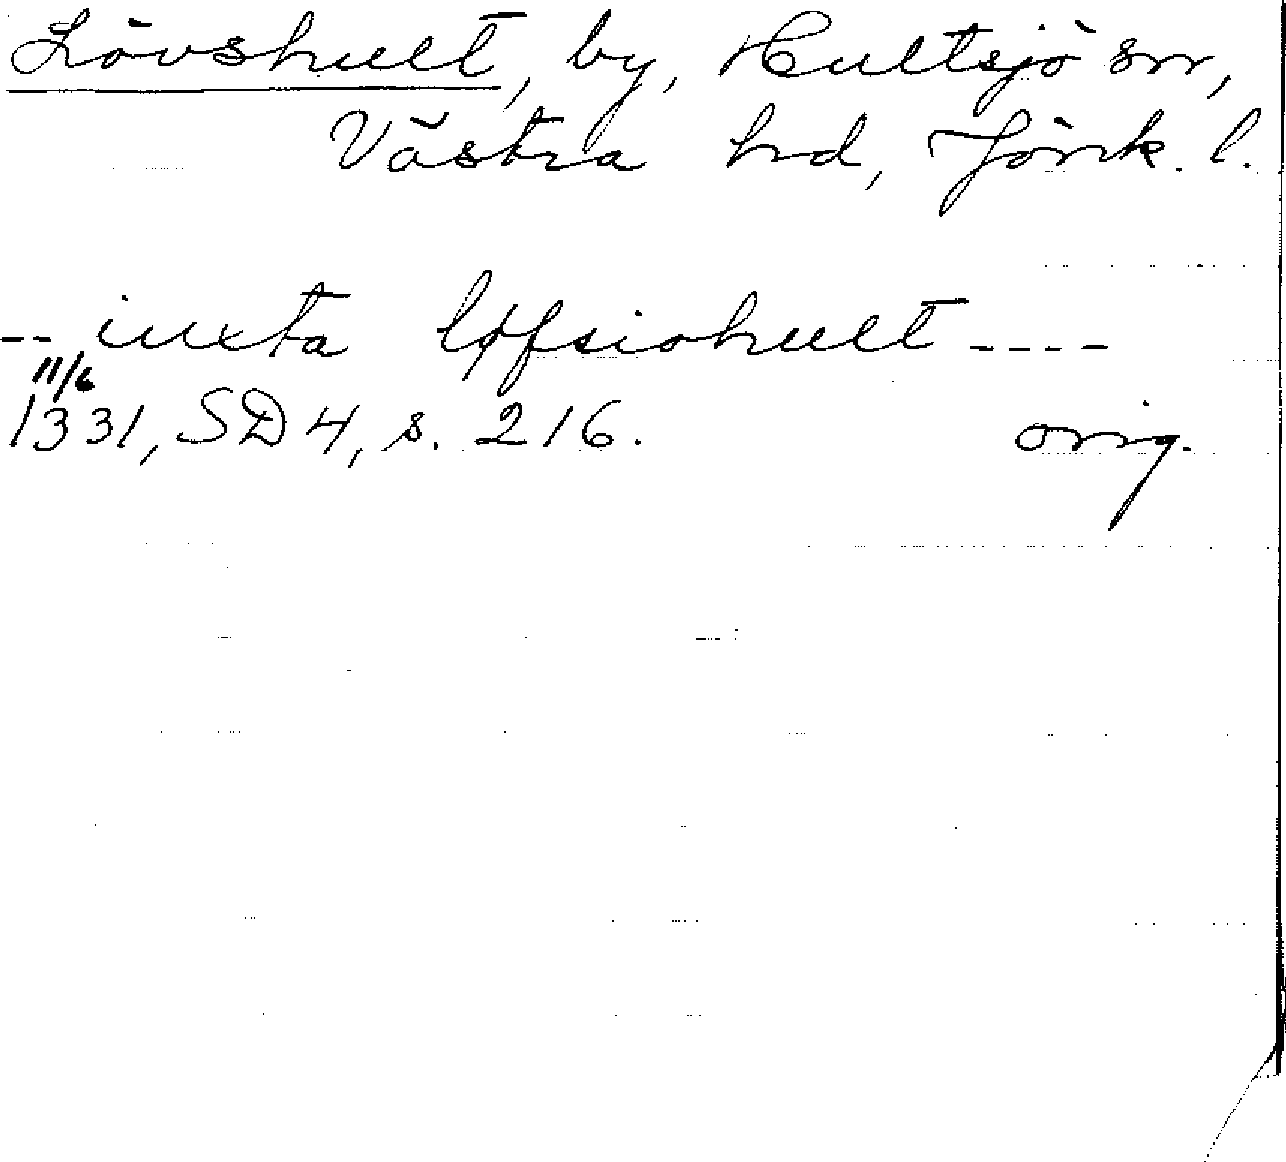 Lövshult, by, Hultsjö sn,
Västra hd, Jönk. l.
-- iuxta løfsiohult ----
11/6
1331, SD 4, s. 216. orig.